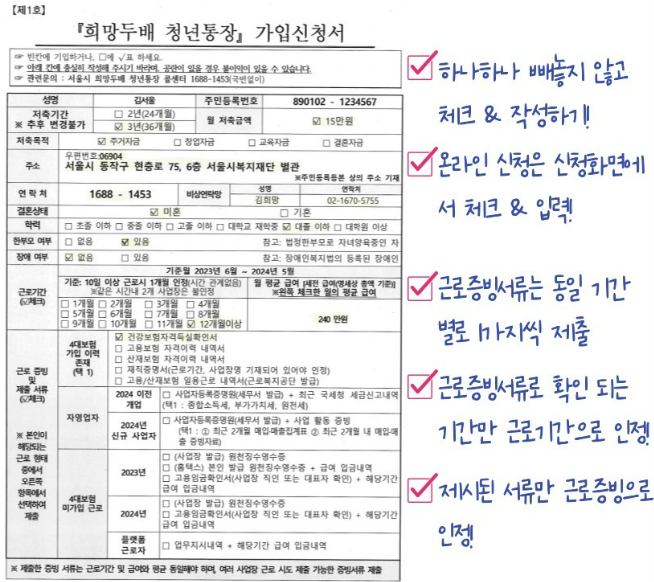 【제1호】
『희망두배 청년통장』 가입신청서
☞ 빈칸에 기입하거나, □에 √표 하세요.
☞ 아래 칸에 충실히 작성해 주시기 바라며, 공란이 있을 경우 불이익이 있을 수 있습니다.
☞ 관련문의 : 서울시 희망두배 청년통장 콜센터 1688-1453(국번없이)
성명 김서울 주민등록번호 890102 - 1234567
저축기간
※ 추후 변경불가
□ 2년(24개월)
☑ 3년(36개월)
월 저축금액 ☑ 15만원
저축목적 ☑ 주거자금 □ 창업자금 □ 교육자금 □ 결혼자금
주소
우편번호:06904
서울시 동작구 현충로 75, 6층 서울시복지재단 별관
※주민등록등본 상의 주소 기재
연 락 처 1688 - 1453 비상연락망
성명 연락처
김희망 02-1670-5755
결혼상태 ☑ 미혼 □ 기혼
학력 □ 초졸 이하 □ 중졸 이하 □ 고졸 이하 □ 대학교 재학중 ☑ 대졸 이하 □ 대학원 이상
한부모 여부 □ 없음 ☑ 있음 참고: 법정한부모로 자녀양육중인 자
장애 여부 ☑ 없음 □ 있음 참고: 장애인복지법의 등록된 장애인
근로기간
(☑체크)
기준월 2023년 6월 ~ 2024년 5월
기준: 10일 이상 근로시 1개월 인정(시간 관계없음)
※같은 시간내 2개 사업장은 불인정
월 평균 급여 [세전 급여(명세상 총액 기준)]
※왼쪽 체크한 월의 평균 급여
□ 1개월 □ 2개월 □ 3개월 □ 4개월
□ 5개월 □ 6개월 □ 7개월 □ 8개월
□ 9개월 □ 10개월 □ 11개월 ☑ 12개월이상
240 만원
근로 증빙
및
제출 서류
(☑체크)
※ 본인이
해당되는
근로 형태
중에서
오른쪽
항목에서
선택하여
제출
4대보험
가입 이력
존재
(택 1)
☑ 건강보험자격득실확인서
□ 고용보험 자격이력 내역서
□ 산재보험 자격이력 내역서
□ 재직증명서(근로기간, 사업장명 기재되어 있어야 인정)
□ 고용/산재보험 일용근로 내역서(근로복지공단 발급)
자영업자
2024 이전
개업
□ 사업자등록증명원(세무서 발급) + 최근 국세청 세금신고내역
(택1 : 종합소득세, 부가가치세, 원천세)
2024년
신규 사업자
□ 사업자등록증명원(세무서 발급) + 사업 활동 증빙
(택1 : ① 최근 2개월 매입·매출집계표 ② 최근 2개월 내 매입·매
출 증빙자료)
4대보험
미가입 근로
2023년
□ (사업장 발급) 원천징수영수증
□ (홈택스) 본인 발급 원천징수영수증 + 급여 입금내역
□ 고용임금확인서(사업장 직인 또는 대표자 확인) + 해당기간
급여 입금내역
2024년
□ (사업장 발급) 원천징수영수증
□ 고용임금확인서(사업장 직인 또는 대표자 확인) + 해당기간
급여 입금내역
플랫폼
근로자
□ 업무지시내역 + 해당기간 급여 입금내역
※ 제출한 증빙 서류는 근로기간 및 급여와 평균 동일해야 하며, 여러 사업장 근로 시도 제출 가능한 증빙서류 제출
하나하나 빼놓지 않고
체크 & 작성하기!
온라인 신청은 신청화면에
서 체크 & 입력!
근로증빙서류는 동일 기간
별로 1가지씩 제출
근로증빙서류로 확인 되는
기간만 근로기간으로 인정!
제시된 서류만 근로증빙으로
인정!